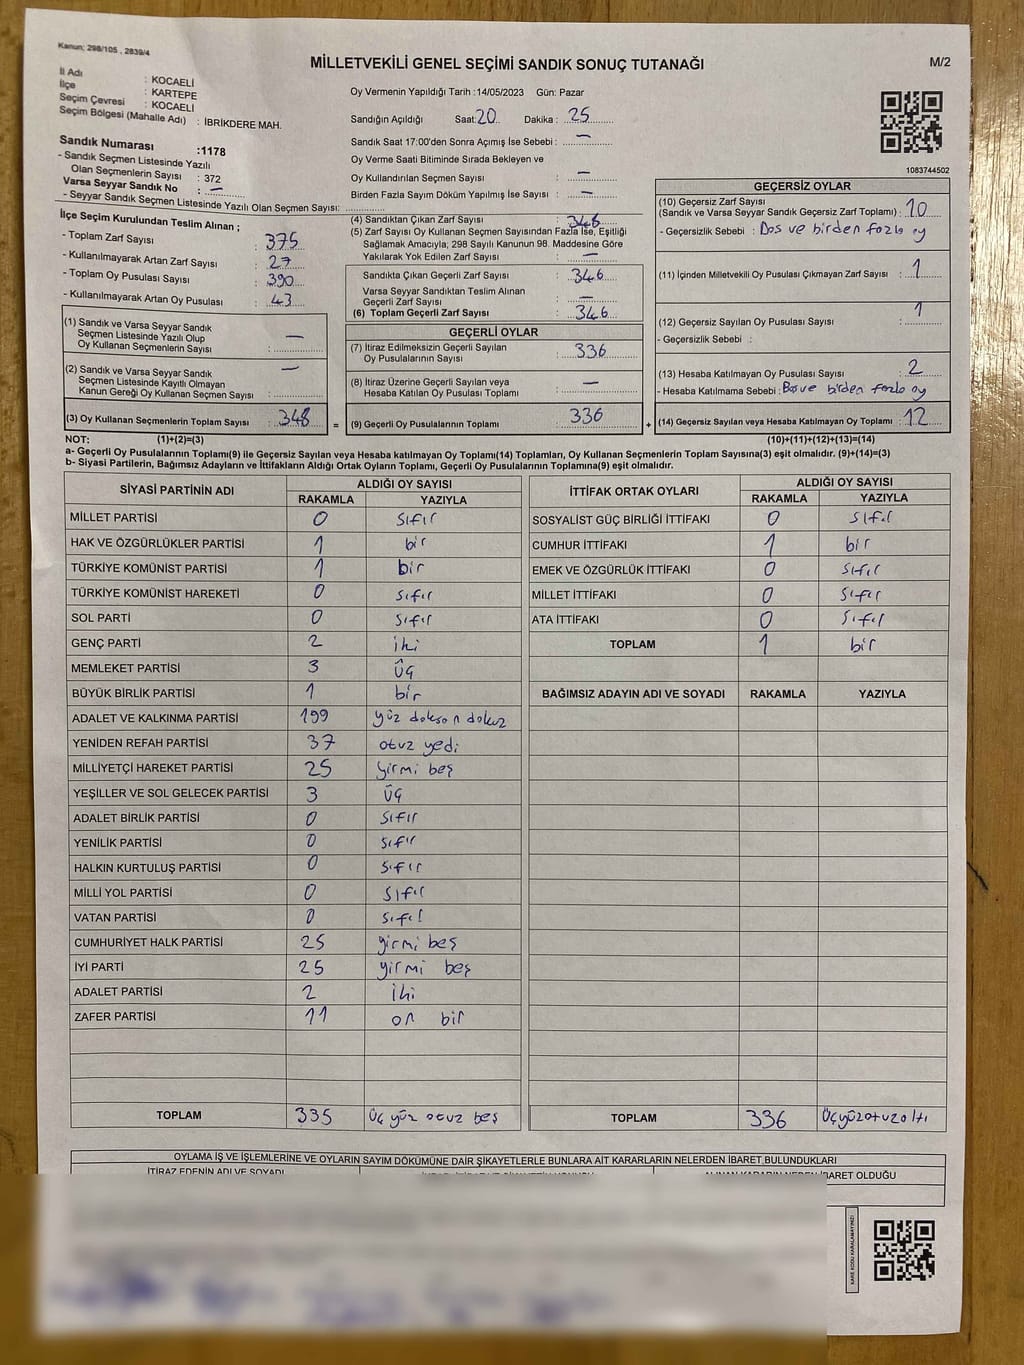 Kanun; 298/105 , 2839/4
MİLLETVEKİLİ GENEL SEÇİMİ SANDIK SONUÇ TUTANAĞI
M/2
İl Adı : KOCAELİ
İlçe : KARTEPE
Seçim Çevresi : KOCAELİ
Seçim Bölgesi (Mahalle Adı) : İBRİKDERE MAH.
Sandık Numarası :1178
- Sandık Seçmen Listesinde Yazılı
Olan Seçmenlerin Sayısı : 372
Varsa Seyyar Sandık No : —
- Seyyar Sandık Seçmen Listesinde Yazılı Olan Seçmen Sayısı:
Oy Vermenin Yapıldığı Tarih :14/05/2023 Gün: Pazar
Sandığın Açıldığı Saat: 20 Dakika : 25
Sandık Saat 17:00'den Sonra Açımış İse Sebebi : —
Oy Verme Saati Bitiminde Sırada Bekleyen ve
Oy Kullandırılan Seçmen Sayısı : —
Birden Fazla Sayım Döküm Yapılmış İse Sayısı : —
1083744502
İlçe Seçim Kurulundan Teslim Alınan ;
- Toplam Zarf Sayısı : 375
- Kullanılmayarak Artan Zarf Sayısı : 27
- Toplam Oy Pusulası Sayısı : 390
- Kullanılmayarak Artan Oy Pusulası : 43
(1) Sandık ve Varsa Seyyar Sandık
Seçmen Listesinde Yazılı Olup
Oy Kullanan Seçmenlerin Sayısı : —
(2) Sandık ve Varsa Seyyar Sandık
Seçmen Listesinde Kayıtlı Olmayan
Kanun Gereği Oy Kullanan Seçmen Sayısı : —
(3) Oy Kullanan Seçmenlerin Toplam Sayısı : 348
(4) Sandıktan Çıkan Zarf Sayısı : 346
(5) Zarf Sayısı Oy Kullanan Seçmen Sayısından Fazla İse, Eşitliği
Sağlamak Amacıyla; 298 Sayılı Kanunun 98. Maddesine Göre
Yakılarak Yok Edilen Zarf Sayısı : —
Sandıkta Çıkan Geçerli Zarf Sayısı : 346
Varsa Seyyar Sandıktan Teslim Alınan
Geçerli Zarf Sayısı : —
(6) Toplam Geçerli Zarf Sayısı : 346
GEÇERLİ OYLAR
(7) İtiraz Edilmeksizin Geçerli Sayılan
Oy Pusulalarının Sayısı : 336
(8) İtiraz Üzerine Geçerli Sayılan veya
Hesaba Katılan Oy Pusulası Toplamı : —
= (9) Geçerli Oy Pusulalarının Toplamı : 336 +
GEÇERSİZ OYLAR
(10) Geçersiz Zarf Sayısı
(Sandık ve Varsa Seyyar Sandık Geçersiz Zarf Toplamı) : 10
- Geçersizlik Sebebi : Bos ve birden fazla oy
(11) İçinden Milletvekili Oy Pusulası Çıkmayan Zarf Sayısı : 1
(12) Geçersiz Sayılan Oy Pusulası Sayısı : 1
- Geçersizlik Sebebi :
(13) Hesaba Katılmayan Oy Pusulası Sayısı : 2
- Hesaba Katılmama Sebebi : ve birden fazla oy
(14) Geçersiz Sayılan veya Hesaba Katılmayan Oy Toplamı : 12
NOT: (1)+(2)=(3) (10)+(11)+(12)+(13)=(14)
a- Geçerli Oy Pusulalarının Toplamı(9) ile Geçersiz Sayılan veya Hesaba katılmayan Oy Toplamı(14) Toplamları, Oy Kullanan Seçmenlerin Toplam Sayısına(3) eşit olmalıdır. (9)+(14)=(3)
b- Siyasi Partilerin, Bağımsız Adayların ve İttifakların Aldığı Ortak Oyların Toplamı, Geçerli Oy Pusulalarının Toplamına(9) eşit olmalıdır.
SİYASİ PARTİNİN ADI ALDIĞI OY SAYISI
RAKAMLA YAZIYLA
MİLLET PARTİSİ 0 sıfır
HAK VE ÖZGÜRLÜKLER PARTİSİ 1 bir
TÜRKİYE KOMÜNİST PARTİSİ 1 bir
TÜRKİYE KOMÜNİST HAREKETİ 0 sıfır
SOL PARTİ 0 sıfır
GENÇ PARTİ 2 iki
MEMLEKET PARTİSİ 3 üç
BÜYÜK BİRLİK PARTİSİ 1 bir
ADALET VE KALKINMA PARTİSİ 199 yüz doksan dokuz
YENİDEN REFAH PARTİSİ 37 otuz yedi
MİLLİYETÇİ HAREKET PARTİSİ 25 yirmi beş
YEŞİLLER VE SOL GELECEK PARTİSİ 3 üç
ADALET BİRLİK PARTİSİ 0 sıfır
YENİLİK PARTİSİ 0 sıfır
HALKIN KURTULUŞ PARTİSİ 0 sıfır
MİLLİ YOL PARTİSİ 0 sıfır
VATAN PARTİSİ 0 sıfır
CUMHURİYET HALK PARTİSİ 25 yirmi beş
İYİ PARTİ 25 yirmi beş
ADALET PARTİSİ 2 iki
ZAFER PARTİSİ 11 on bir
TOPLAM 335 üç yüz otuz beş
İTTİFAK ORTAK OYLARI ALDIĞI OY SAYISI
RAKAMLA YAZIYLA
SOSYALİST GÜÇ BİRLİĞİ İTTİFAKI 0 sıfır
CUMHUR İTTİFAKI 1 bir
EMEK VE ÖZGÜRLÜK İTTİFAKI 0 sıfır
MİLLET İTTİFAKI 0 sıfır
ATA İTTİFAKI 0 sıfır
TOPLAM 1 bir
BAĞIMSIZ ADAYIN ADI VE SOYADI RAKAMLA YAZIYLA
TOPLAM 336 üçyüzotuzaltı
OYLAMA İŞ VE İŞLEMLERİNE VE OYLARIN SAYIM DÖKÜMÜNE DAİR ŞİKAYETLERLE BUNLARA AİT KARARLARIN NELERDEN İBARET BULUNDUKLARI
İTİRAZ EDENİN ADI VE SOYADI
ALINAN KARARIN NEDEN İBARET OLDUĞU
KARE KODU KARALAMAYINIZ!